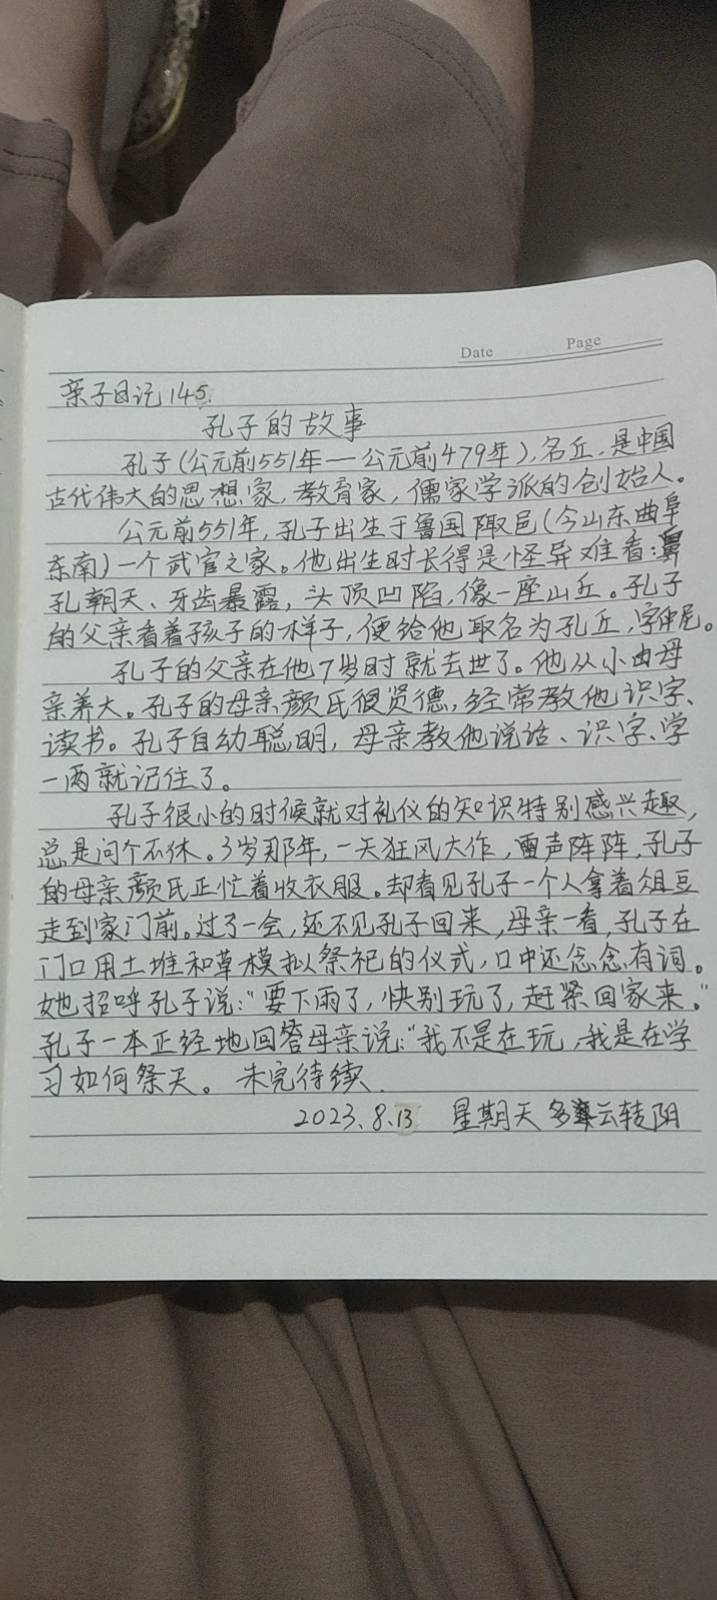 Date Page
亲子日记145.
孔子的故事
孔子(公元前551年—公元前479年),名丘,是中国
古代伟大的思想家,教育家,儒家学派的创始人。
公元前551年,孔子出生于鲁国陬邑(今山东曲阜
东南)一个武官之家。他出生时长得是怪异难看:鼻
孔朝天、牙齿暴露,头顶凹陷,像一座山丘。孔子
的父亲看着孩子的样子,便给他取名为孔丘,字仲尼。
孔子的父亲在他7岁时就去世了。他从小由母
亲养大。孔子的母亲颜氏很贤德,经常教他识字、
读书。孔子自幼聪明,母亲教他说话、识字、学
一两就记住了。
孔子很小的时候就对礼仪的知识特别感兴趣,
总是问个不休。3岁那年,一天狂风大作,雷声阵阵,孔子
的母亲颜氏正忙着收衣服。却看见孔子一个人拿着俎豆
走到家门前。过了一会,还不见孔子回来,母亲一看,孔子在
门口用土堆和草模拟祭祀的仪式,口中还念念有词。
她招呼孔子说:“要下雨了,快别玩了,赶紧回家来。”
孔子一本正经地回答母亲说:“我不是在玩,我是在学
习如何祭天。未完待续.
2023.8.13 星期天 多云转阴